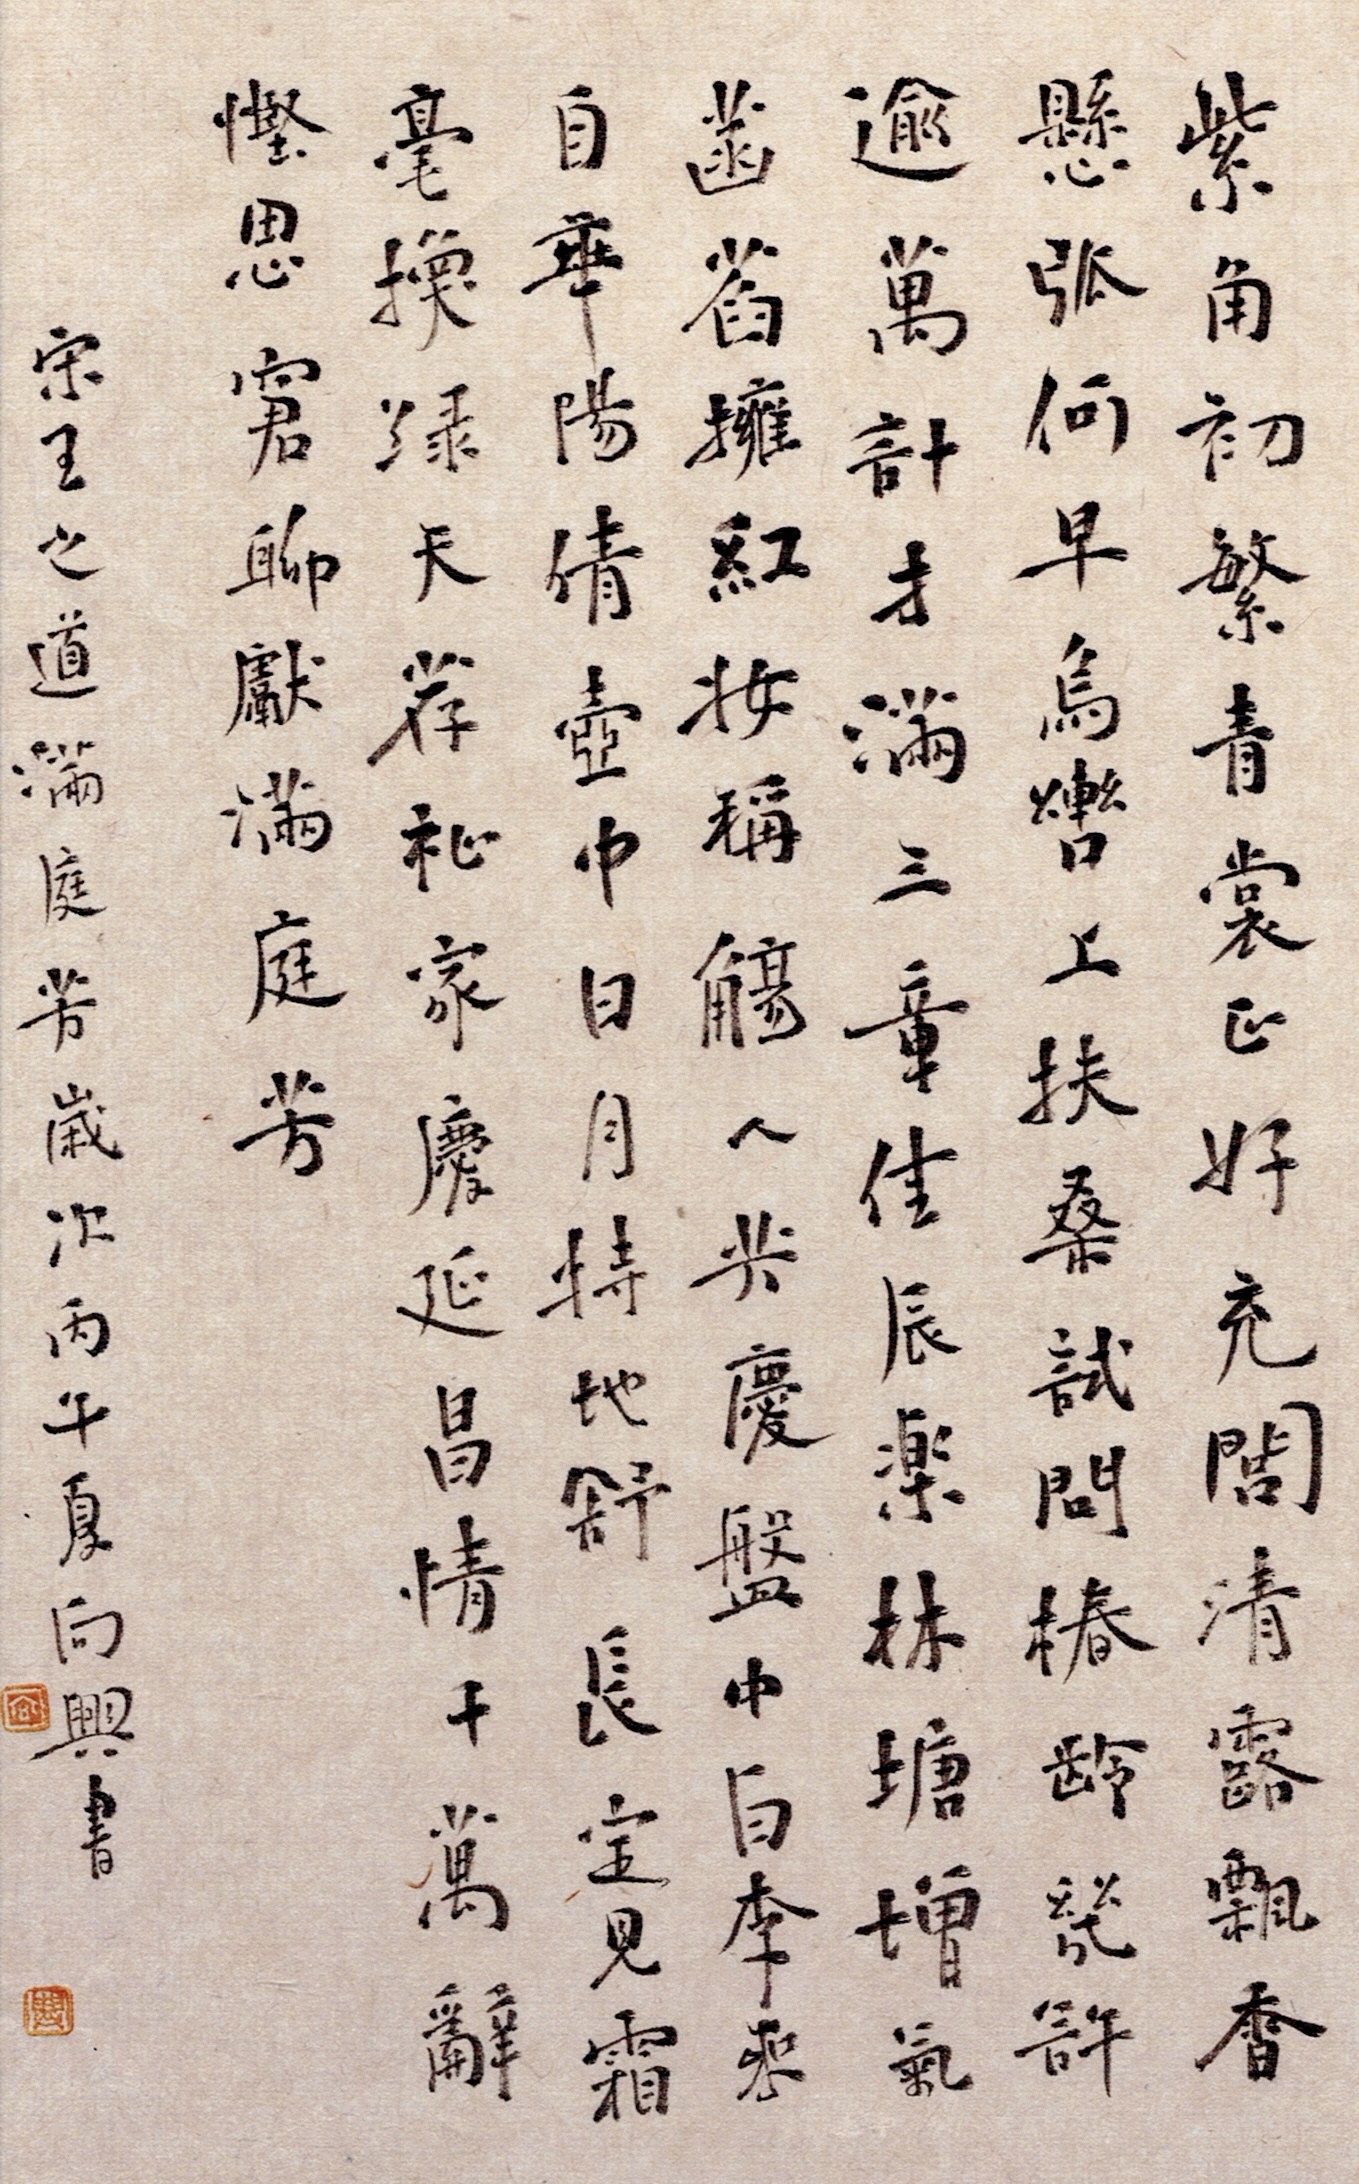 紫角初繁青裳正好充閭清露飄香
懸弧何早烏轡上扶桑試問椿齡幾許
逾萬計才滿三章佳辰楽林塘增氣
菡萏擁紅妝稱觴人共慶盤中白李來
自華陽倩壺中日月特地舒長定見霜
毫換綠天荐祉家慶延昌情千萬辭
慳思窘聊獻滿庭芳
宋王之道滿庭芳歲次丙午夏向興書